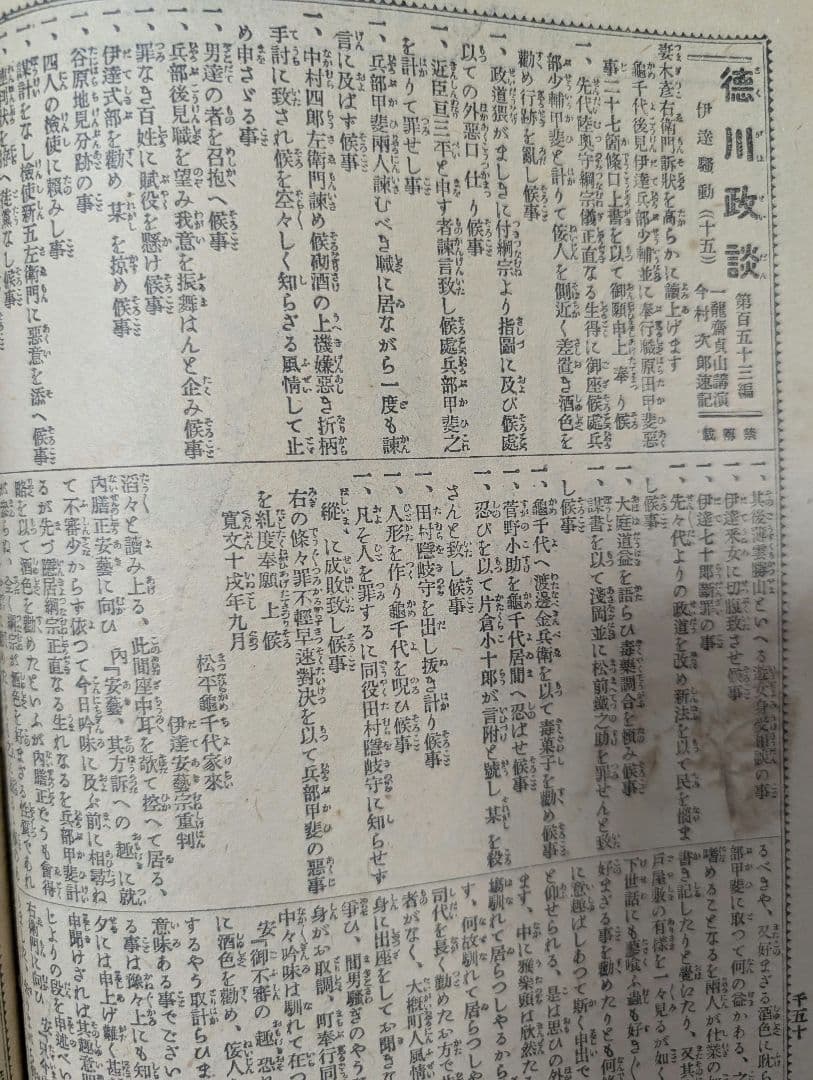 德川政談
伊達騷動(十五)
第百五十三編
一龍齋貞山講演
今村次郎速記
禁轉載
妻木彥右衞門訴狀を高らかに讀上げます
龜千代後見伊達兵部少輔並に奉行職原田甲斐惡
事二十七箇條口上書を以て御願申上奉り候
一、先代陸奥守綱宗儀正直なる生得に御座候處兵
部少輔甲斐と計りて佞人を側近く差置き酒色を
勸め行跡を亂し候事
一、政道猥がましきに付綱宗より指圖に及び候處
以ての外惡口仕り候事
一、近臣亘三平と申す者諫言致し候處兵部甲斐之
を計りて罪せし事
一、兵部甲斐兩人諫むべき職に居ながら一度も諫
言に及ばず候事
一、中村四郎左衞門諫め候砌酒の上機嫌惡き折柄
手討に致され候を空々しく知らざる風情して止
め申さゞる事
一、男達の者を召抱へ候事
一、兵部後見職を望み我意を振舞はんと企み候事
一、罪なき百姓に賦役を懸け候事
一、伊達式部を勸め某を掠め候事
一、谷原地見分跡の事
一、四人の檢使に賴みし事
一、謀計をなし檢使新五左衞門に惡意を添へ候事
一、其後薄雲勝山といへる遊女身受相談の事
一、伊達釆女に切腹致させ候事
一、伊達七十郞斷罪の事
一、先々代よりの政道を改め新法を以て民を惱ま
し候事
一、大庭道益を語らひ毒藥調合を賴み候事
一、謀書を以て淺岡並に松前鐵之助を罪せんと致
し候事
一、龜千代へ渡邊金兵衞を以て毒菓子を勸め候事
一、菅野小助を龜千代居間へ忍ばせ候事
一、忍びを以て片倉小十郞が言附と號し某を殺
さんと致し候事
一、田村隱岐守を出し拔き計り候事
一、人形を作り龜千代を呪ひ候事
一、凡そ人を罪するに同役田村隱岐守に知らせず
縱に成敗致し候事
右の條々罪不輕早速對決を以て兵部甲斐の惡事
を糺度奉願上候
寬文十戌年九月
松平龜千代家來
伊達安藝宗重判
滔々と讀み上る、此間座中耳を欹て控へて居る、
內膳正安藝に向ひ
內『安藝、其方訴への趣に就
て不審少からず依つて今日吟味に及ぶ前に相尋ね
るが先づ隱居綱宗正直なる生れなるを兵部甲斐計
略を以て酒色を勸めたといふが內膳正たうも會得
るべきや、又好まざる酒色に耽ら
部甲斐に取つて何の益かある、
嗜めることなるを兩人が仕業の
書き記したりと覺いたり、又其
戸屋敷の有樣を一々見るが如く
下世話にも蓼喰ふ蟲も好き
好まざる事を勸めたりとも何
に意趣はしあつて斯く申出で
と仰せられる、是は思ひの外
ます、中に雅樂頭は欣然た
場馴れて居らつしやるから
す、何故馴れて居らつしや
司代を長く勤めたお方で
者がなく、大槪町人風情
身に出座をしてお聞きな
爭ひ、間男騷ぎのやう
身がお取調、町奉行同
中々吟味は馴れて在つ
安『御不審の趣恐
に酒色を勸め、佞人
するやう取計らひま
意味ある事でござい
る事は豫々上にも知
夕には申上げ難く甚
申聞けされは其趣意
千五十